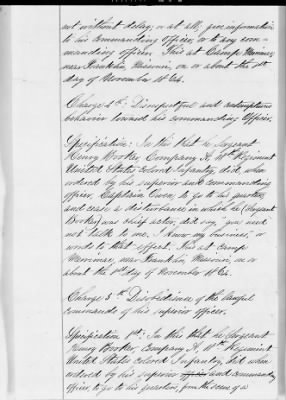 not without delay, or at all, give information
to his commanding officer, or to any com-
manding officer. This at Camp Merrimac,
near Franklin, Missouri, on or about the 1st
day of November 1864.
Charge 2d: Disrespectful and contemptuous
behavior toward his commanding Officer.
Specification: In this that he Sergeant
Henry Booker, Company H, Regiment
United States Colored Infantry, did, when
ordered by his superior and commanding
officer, Captain Owen, to go to his quarters,
and cease a disturbance in which he (Sergeant
Booker) was chief actor, did say, "you need
not talk to me, I know my business," or
words to that effect. This at Camp
Merrimac, near Franklin, Missouri, on or
about the 1st day of November 1864.
Charge 3d: Disobedience of the lawful
commands of his superior officer.
Specification 1st: In this that he Sergeant
Henry Booker, Company H, Regiment
United States Colored Infantry, did when
ordered by his superior and commanding
officer, to go to his quarters, from the scene of a